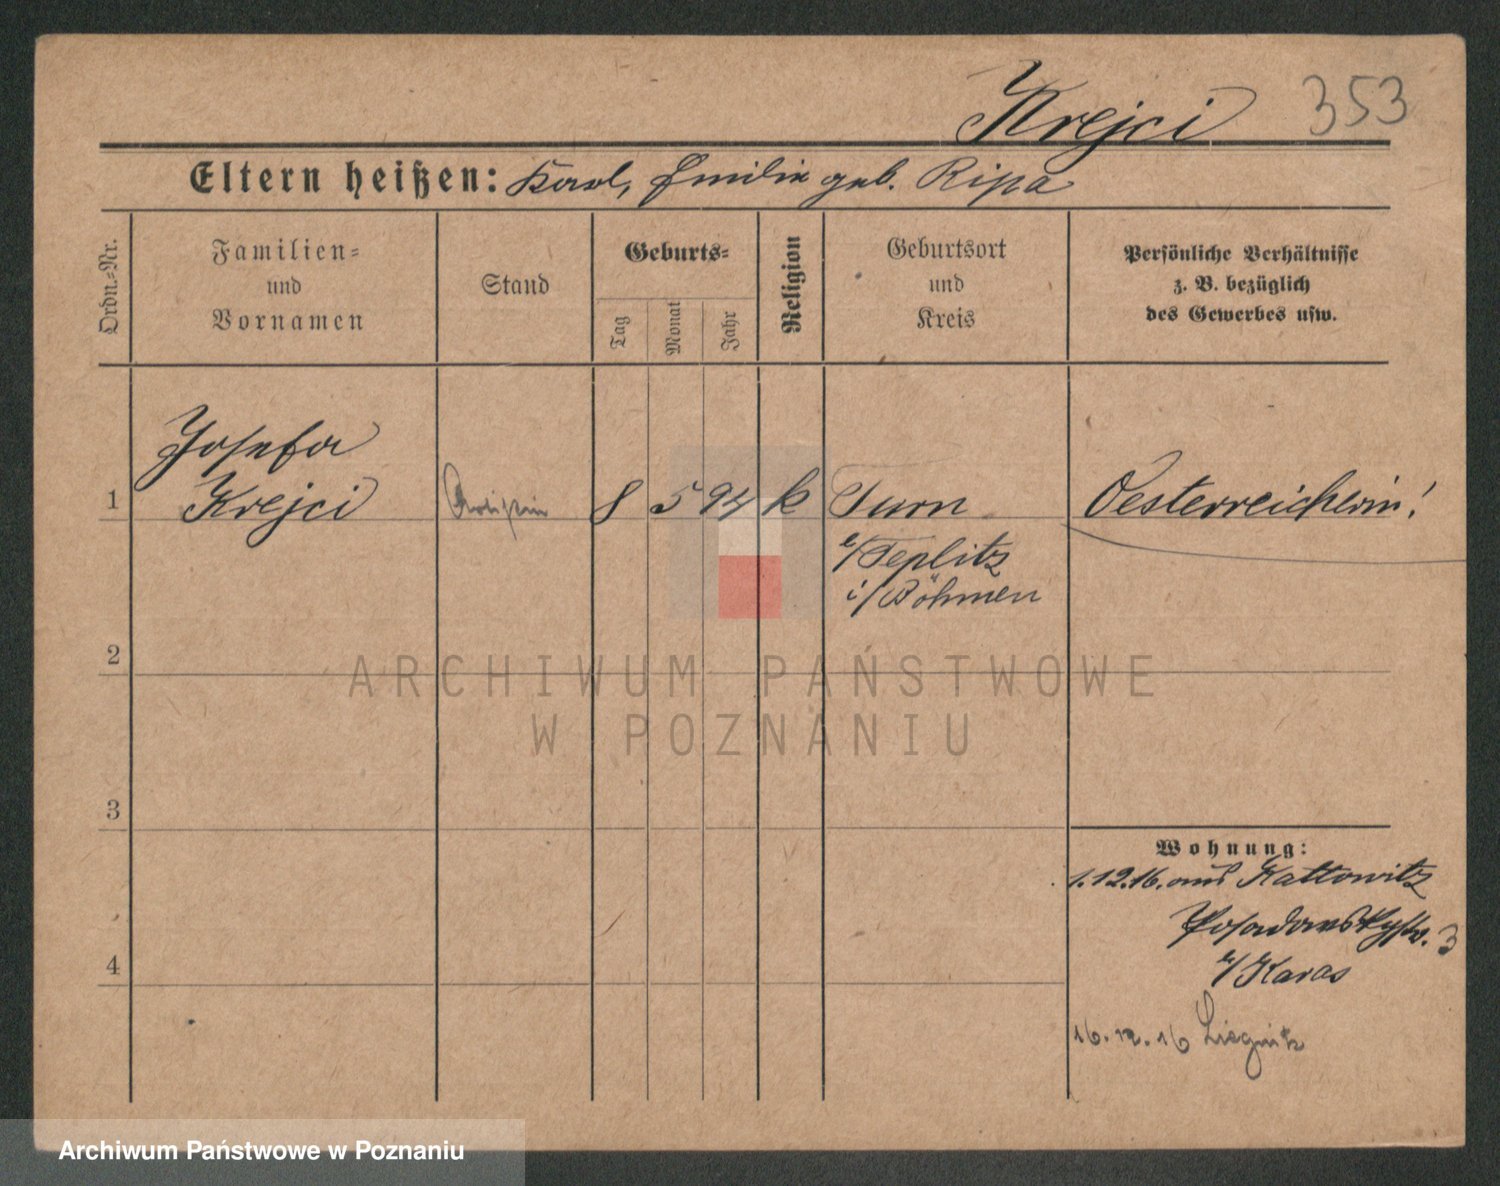 Krejci 353
Eltern heißen: Karl, Emilie geb. Ripa
Ordn.-Nr.
Familien-
und
Vornamen
Stand
Geburts-
Tag
Monat
Jahr
Religion
Geburtsort
und
Kreis
Persönliche Verhältnisse
z. B. bezüglich
des Gewerbes usw.
Josefa
1 Krejci Artistin 8 5 94 k Turn Oesterreicherin!
b/Teplitz
i/Böhmen
2
3
4
Wohnung:
1.12.16. aus Kattowitz
Posadowskystr. 3
b/Karas
16.12.16 Liegnitz
ARCHIWUM PAŃSTWOWE
W POZNANIU
Archiwum Państwowe w Poznaniu